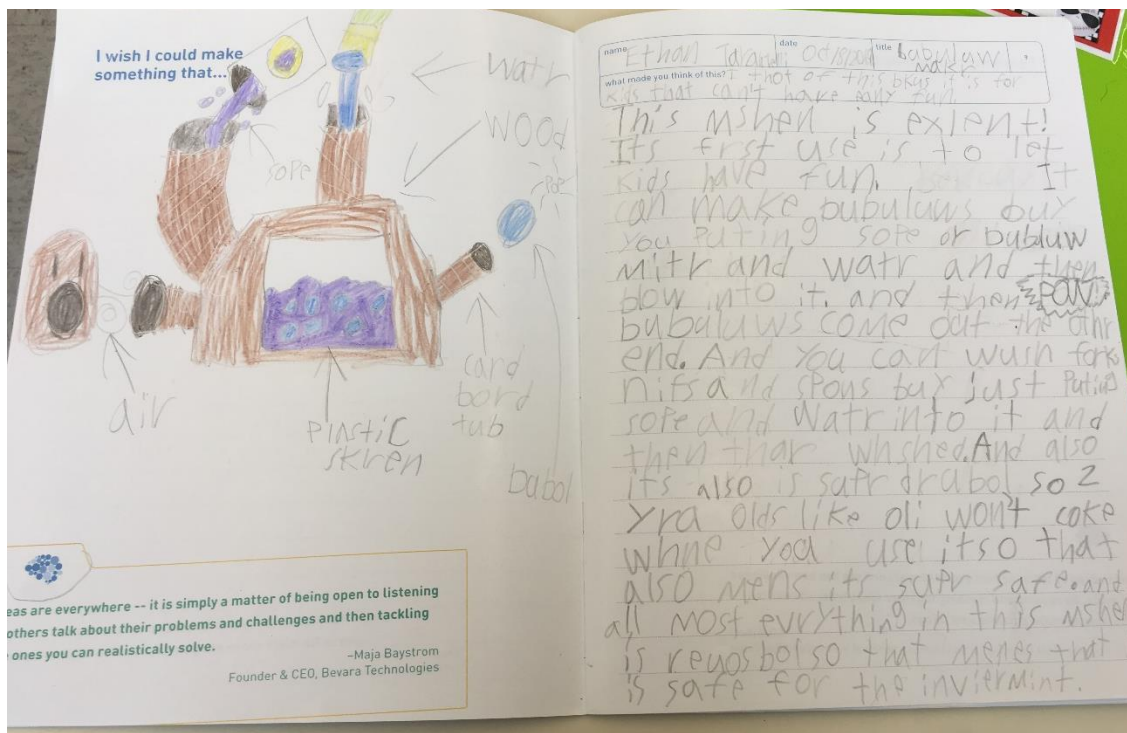 I wish I could make
something that...
watr
WOOd
sope
POP
air
plastic
skren
card
bord
tub
babol
eas are everywhere -- it is simply a matter of being open to listening
others talk about their problems and challenges and then tackling
ones you can realistically solve.
–Maja Baystrom
Founder & CEO, Bevara Technologies
name Ethan date title babulaw
makr
what made you think of this? I thot of this bkus it's for
kids that can't have eany fun.
This mshen is exlent!
Its frst use is to let
kids have fun. It
can make bubuluws buy
you puting sope or bubluw
mitr and watr and then
blow into it. and then POW!
bubuluws come out the othr
end. And you can wush forks
nifs and spons buy just Puting
sope and watr into it and
then thar whshed. And also
its also is supr drabol so 2
yra olds like oli won't coke
whne you use itso that
also mens its supr safe. and
all most evrything in this mshen
is reyosbol so that menes that
is safe for the inviermint.